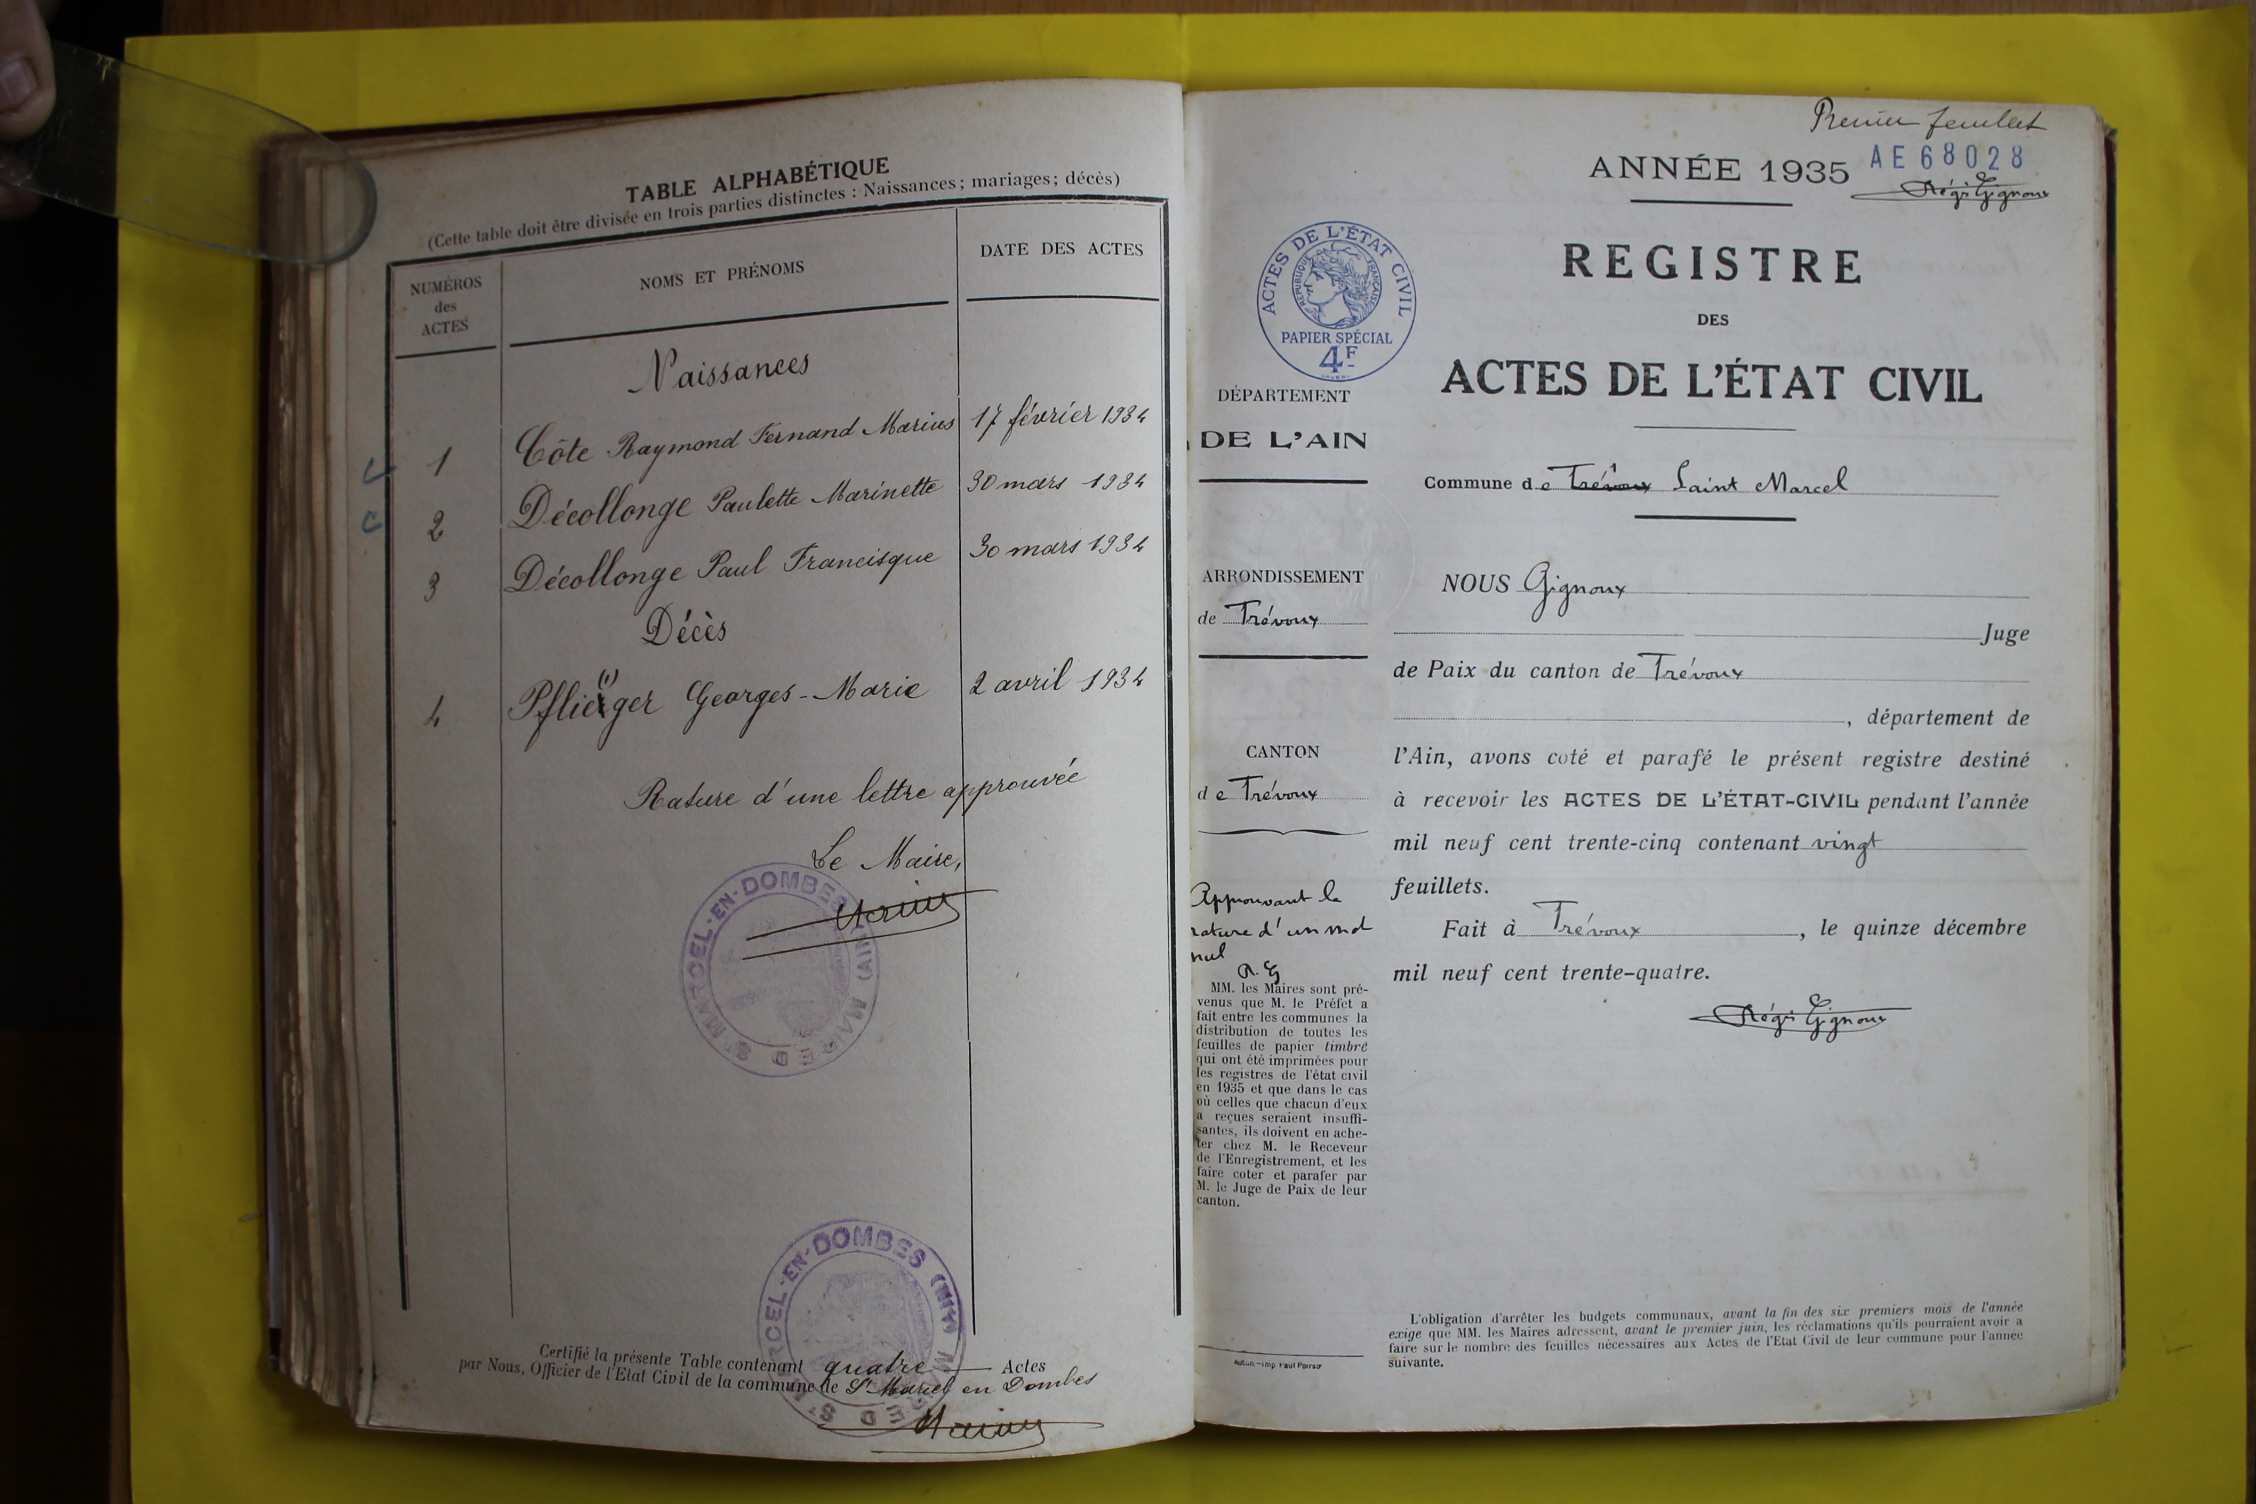 TABLE ALPHABÉTIQUE
(Cette table doit être divisée en trois parties distinctes : Naissances ; mariages ; décès)
NUMÉROS
des
ACTES
NOMS ET PRÉNOMS
DATE DES ACTES
Naissances
1 Côte Raymond Fernand Marius 17 février 1934
2 Décollonge Paulette Marinette 30 mars 1934
3 Décollonge Paul Francisque 30 mars 1934
Décès
4 Pflieger Georges-Marie 2 avril 1934
Rature d'une lettre approuvée
Le Maire,
ST MARCEL-EN-DOMBES (AIN) MAIRIE D
Certifié la présente Table contenant quatre Actes
par Nous, Officier de l'Etat Civil de la commune de St Marcel en Dombes
ST MARCEL-EN-DOMBES (AIN) MAIRIE D
Premier feuillet
ANNÉE 1935
AE68028
Régis Gignoux
REGISTRE
DES
ACTES DE L'ÉTAT CIVIL
ACTES DE L'ÉTAT CIVIL
RÉPUBLIQUE FRANÇAISE
PAPIER SPÉCIAL
4F
DÉPARTEMENT
DE L'AIN
Commune de Trévoux Saint Marcel
ARRONDISSEMENT
de Trévoux
CANTON
de Trévoux
Approuvant la
rature d'un mot
nul
R. G
MM. les Maires sont pré-
venus que M. le Préfet a
fait entre les communes la
distribution de toutes les
feuilles de papier timbré
qui ont été imprimées pour
les registres de l'état civil
en 1935 et que dans le cas
où celles que chacun d'eux
a reçues seraient insuffi-
santes, ils doivent en ache-
ter chez M. le Receveur
de l'Enregistrement, et les
faire coter et parafer par
M. le Juge de Paix de leur
canton.
NOUS Gignoux
Juge
de Paix du canton de Trévoux
, département de
l'Ain, avons coté et parafé le présent registre destiné
à recevoir les ACTES DE L'ÉTAT-CIVIL pendant l'année
mil neuf cent trente-cinq contenant vingt
feuillets.
Fait à Trévoux, le quinze décembre
mil neuf cent trente-quatre.
Régis Gignoux
L'obligation d'arrêter les budgets communaux, avant la fin des six premiers mois de l'année
exige que MM. les Maires adressent, avant le premier juin, les réclamations qu'ils pourraient avoir à
faire sur le nombre des feuilles nécessaires aux Actes de l'Etat Civil de leur commune pour l'année
suivante.